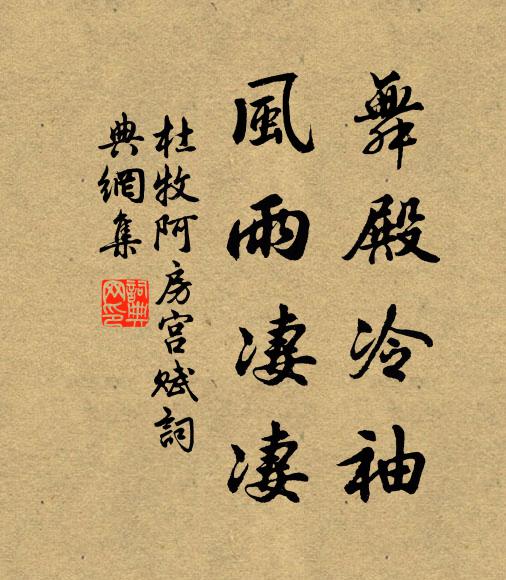 舞殿冷袖
風雨淒淒
杜牧阿房宮賦詞
典網集
詞典网印